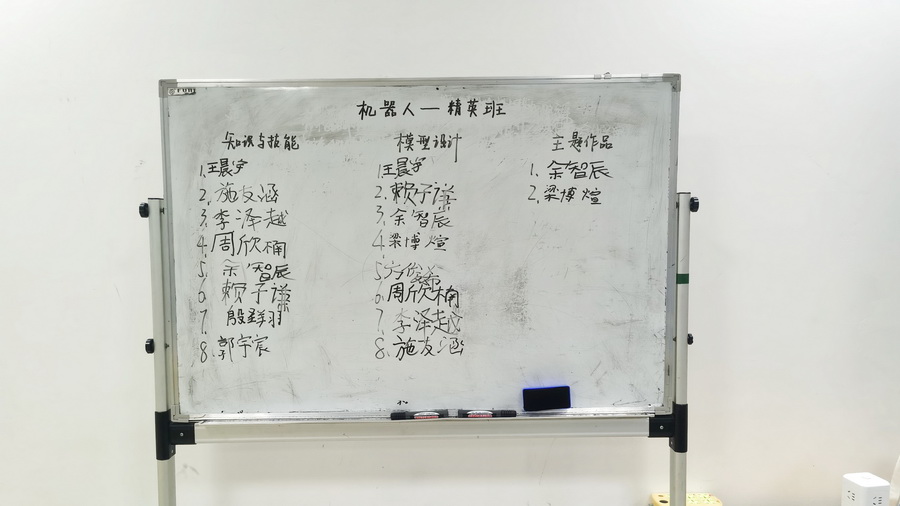 机器人一精英班
知识与技能
1.王晨宇
2.施友涵
3.李泽越
4.周欣楠
5.余智辰
6.赖子谦
7.殷梓羽
8.郭宇宸
模型设计
1.王晨宇
2.赖子谦
3.余智辰
4.梁博煊
5.方俊
6.周欣楠
7.李泽越
8.施友涵
主题作品
1.余智辰
2.梁博煊